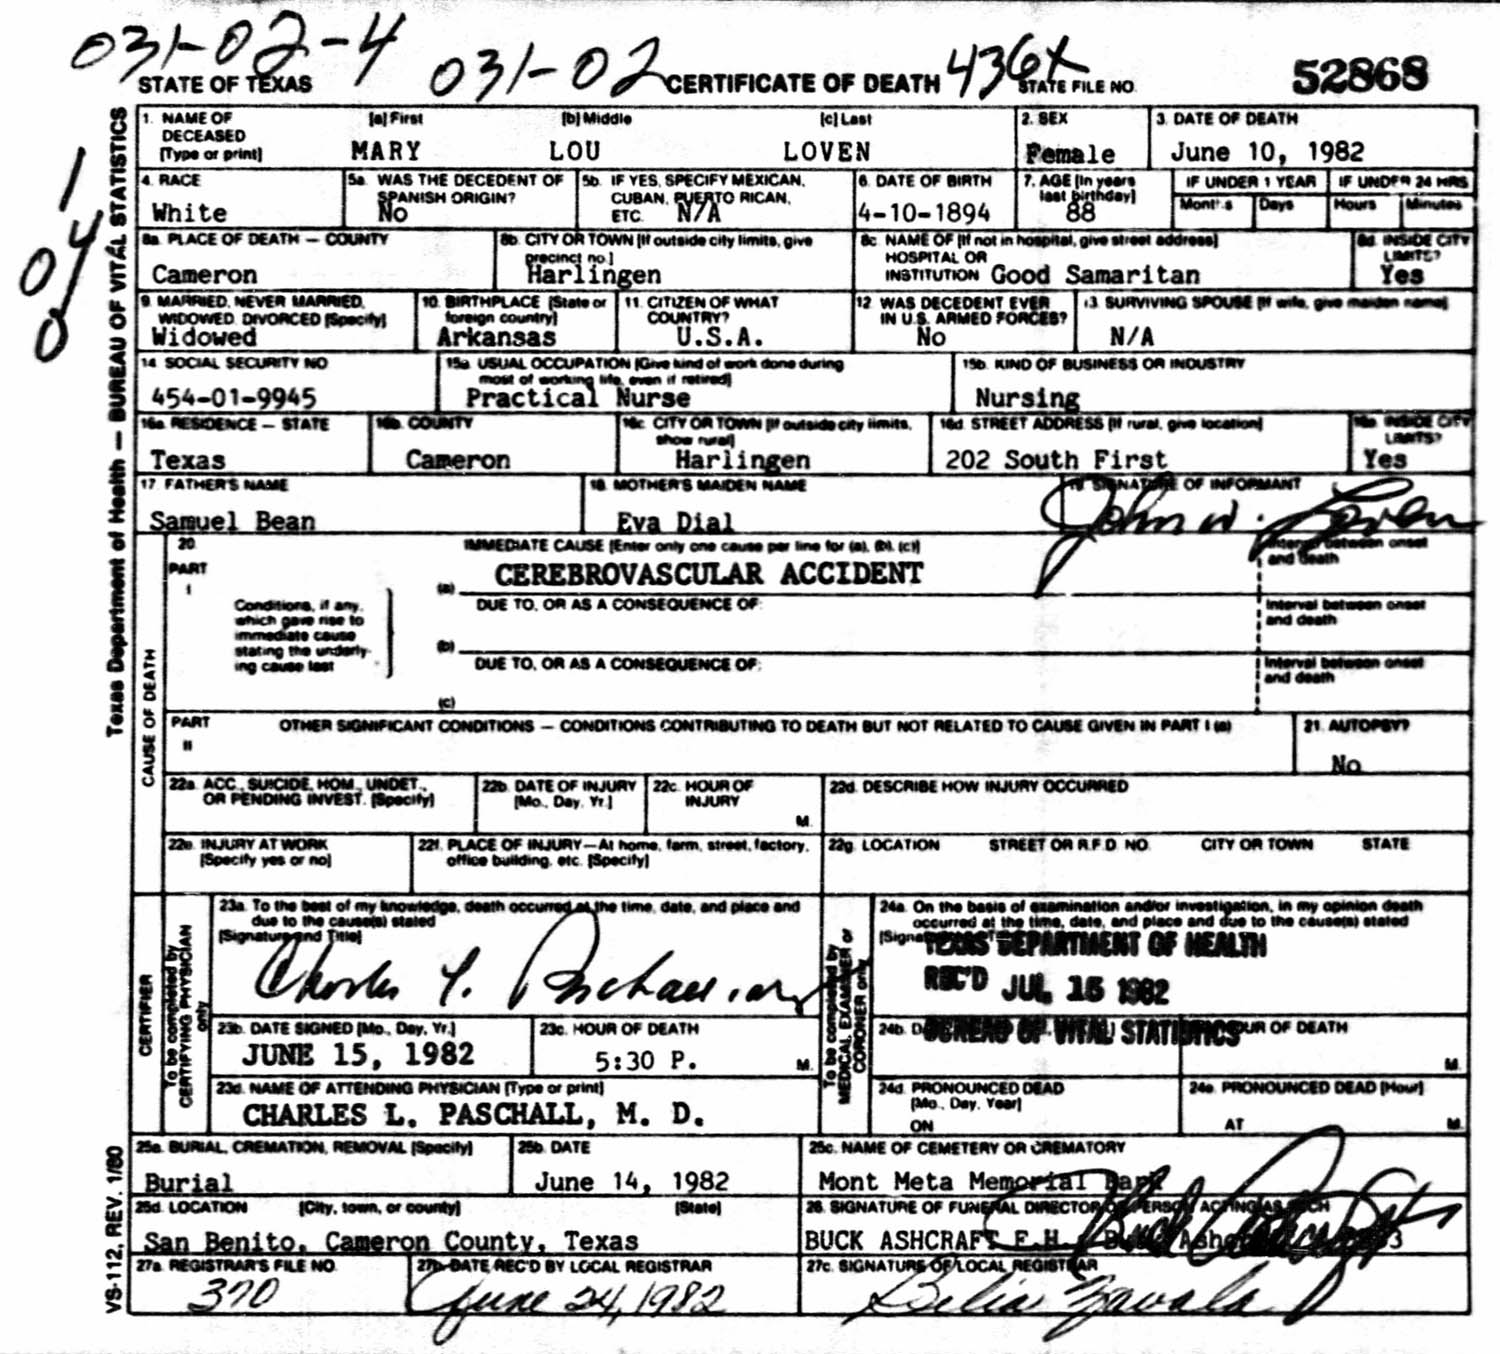 031-02-4 031-02 436X
STATE OF TEXAS CERTIFICATE OF DEATH STATE FILE NO. 52868
Texas Department of Health — BUREAU OF VITAL STATISTICS
1. NAME OF DECEASED [Type or print] [a] First [b] Middle [c] Last 2. SEX 3. DATE OF DEATH
MARY LOU LOVEN Female June 10, 1982
4. RACE 5a. WAS THE DECEDENT OF SPANISH ORIGIN? 5b. IF YES, SPECIFY MEXICAN, CUBAN, PUERTO RICAN, ETC. 6. DATE OF BIRTH 7. AGE [In years last birthday] IF UNDER 1 YEAR Months Days IF UNDER 24 HRS Hours Minutes
White No N/A 4-10-1894 88
8a. PLACE OF DEATH — COUNTY 8b. CITY OR TOWN [If outside city limits, give precinct no.] 8c. NAME OF [If not in hospital, give street address] HOSPITAL OR INSTITUTION 8d. INSIDE CITY LIMITS?
Cameron Harlingen Good Samaritan Yes
9. MARRIED, NEVER MARRIED, WIDOWED, DIVORCED [Specify] 10. BIRTHPLACE [State or foreign country] 11. CITIZEN OF WHAT COUNTRY? 12. WAS DECEDENT EVER IN U.S. ARMED FORCES? 13. SURVIVING SPOUSE [If wife, give maiden name]
Widowed Arkansas U.S.A. No N/A
14. SOCIAL SECURITY NO 15a. USUAL OCCUPATION [Give kind of work done during most of working life, even if retired] 15b. KIND OF BUSINESS OR INDUSTRY
454-01-9945 Practical Nurse Nursing
16a. RESIDENCE — STATE 16b. COUNTY 16c. CITY OR TOWN [If outside city limits, show rural] 16d. STREET ADDRESS [If rural, give location] 16e. INSIDE CITY LIMITS?
Texas Cameron Harlingen 202 South First Yes
17. FATHER'S NAME 18. MOTHER'S MAIDEN NAME 19. SIGNATURE OF INFORMANT
Samuel Bean Eva Dial John W. Loven
CAUSE OF DEATH
20. IMMEDIATE CAUSE [Enter only one cause per line for (a), (b), (c)] Interval between onset and death
PART I (a) CEREBROVASCULAR ACCIDENT
Conditions, if any, which gave rise to immediate cause stating the underlying cause last
DUE TO, OR AS A CONSEQUENCE OF: Interval between onset and death
(b)
DUE TO, OR AS A CONSEQUENCE OF: Interval between onset and death
(c)
PART II OTHER SIGNIFICANT CONDITIONS — CONDITIONS CONTRIBUTING TO DEATH BUT NOT RELATED TO CAUSE GIVEN IN PART I (a) 21. AUTOPSY?
No
22a. ACC., SUICIDE, HOM., UNDET., OR PENDING INVEST. [Specify] 22b. DATE OF INJURY [Mo., Day, Yr.] 22c. HOUR OF INJURY M. 22d. DESCRIBE HOW INJURY OCCURRED
22e. INJURY AT WORK [Specify yes or no] 22f. PLACE OF INJURY—At home, farm, street, factory, office building, etc. [Specify] 22g. LOCATION STREET OR R.F.D. NO. CITY OR TOWN STATE
CERTIFIER
To be completed by CERTIFYING PHYSICIAN only
23a. To the best of my knowledge, death occurred at the time, date, and place and due to the cause(s) stated [Signature and Title]
Charles L. Paschall, MD
23b. DATE SIGNED [Mo., Day, Yr.] 23c. HOUR OF DEATH
JUNE 15, 1982 5:30 P. M.
23d. NAME OF ATTENDING PHYSICIAN [Type or print]
CHARLES L. PASCHALL, M. D.
To be completed by MEDICAL EXAMINER or CORONER only
24a. On the basis of examination and/or investigation, in my opinion death occurred at the time, date, and place and due to the cause(s) stated
TEXAS DEPARTMENT OF HEALTH
REC'D JUL 15 1982
BUREAU OF VITAL STATISTICS
24b. HOUR OF DEATH M.
24d. PRONOUNCED DEAD [Mo., Day, Year] ON 24e. PRONOUNCED DEAD [Hour] AT M.
25a. BURIAL, CREMATION, REMOVAL [Specify] 25b. DATE 25c. NAME OF CEMETERY OR CREMATORY
Burial June 14, 1982 Mont Meta Memorial Park
25d. LOCATION [City, town, or county] [State] 26. SIGNATURE OF FUNERAL DIRECTOR OR PERSON ACTING AS SUCH
San Benito, Cameron County, Texas BUCK ASHCRAFT F.H.
27a. REGISTRAR'S FILE NO. 27b. DATE REC'D BY LOCAL REGISTRAR 27c. SIGNATURE OF LOCAL REGISTRAR
370 June 24, 1982 Belia Zavala
VS-112, REV. 1/80